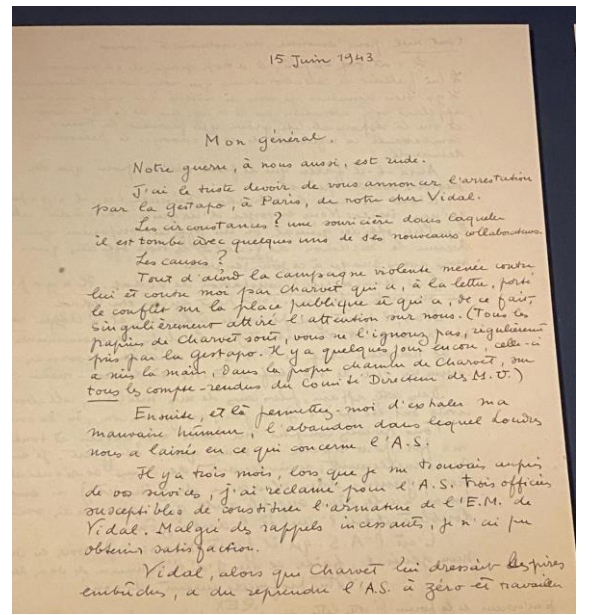 15 Juin 1943
Mon général.
Notre guerre, à nous aussi, est rude.
J'ai le triste devoir de vous annoncer l'arrestation
par la gestapo, à Paris, de notre cher Vidal.
Les circonstances ? une souricière dans laquelle
il est tombé avec quelques uns de ses nouveaux collaborateurs.
Les causes ?
Tout d'abord la campagne violente menée contre
lui et contre moi par Charvet qui a, à la lettre, porté
le conflit sur la place publique et qui a, de ce fait,
singulièrement attiré l'attention sur nous. (Tous les
papiers de Charvet sont, vous ne l'ignorez pas, régulièrement
pris par la gestapo. Il y a quelques jours encore, celle-ci
a mis la main, dans la propre chambre de Charvet, sur
tous les compte-rendus du Comité Directeur des M.U.)
Ensuite, et là permettez-moi d'exhaler ma
mauvaise humeur, l'abandon dans lequel Londres
nous a laissés en ce qui concerne l'A.S.
Il y a trois mois, lors que je me trouvais auprès
de vos services, j'ai réclamé pour l'A.S. trois officiers
susceptibles de constituer l'armature de l'E.M. de
Vidal. Malgré des rappels incessants, je n'ai pu
obtenir satisfaction.
Vidal, alors que Charvet lui dressait les pires
embûches, a du reprendre l'A.S. à zéro et travailler